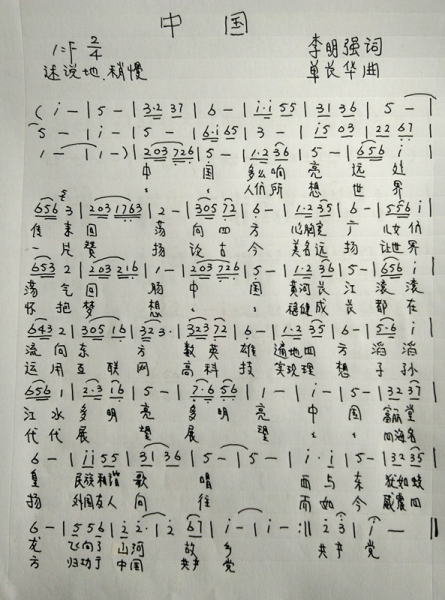 中 国
1=F 2/4 李明强词
述说地.稍慢 单长华曲
(i-|5-|3·2 37|6-|i·i 55|31 36|5-|
5-|i-|5-|6·i 65|3-|i5 03|22 67|
1-|1-)|203 726|5-|1·2 36|5-|656 i|
中 国 多么响 亮 远处
: : 人们所 想 世界
656 3|203 1763|2-|305 72|6-|1·2 35|6-|656 i|
传来回 荡 向四方 心胸宽广 儿女们
一片赞 扬 说古今 美名远扬 让世界
653 2|203 216|1-|203 726|5-|1·2 36|5-|656 i|
荡气回 肠 中 国 黄河长江 滚滚
怀抱梦 想 : : 稳健成长 都在
643 2|305 16|323·|323 72|6-|1·2 35|6-|5·6 i|
流向东 方 数英雄 遍地四方 滔滔
运用互联网 高科技 实现理想 子孙
656 1|2·3 16|5-|7·6 56|1-|i-|5-|32 37|
江水多明亮 多明亮 中 国 富丽堂
代代展 望 展 望 : : 四海名
6-|ii 55|31 36|5-|5-|i·i|5-|32 35|
皇 民族和谐 歌 唱 而与东 犹如蛟
扬 外国友人 向 往 而如今 威震四
6-|55 6|i 2·|2 67|i-|i-:||2 3|i-||
龙 飞向了 山河 故 乡 共产 党
方 归功于 中国 共产 党